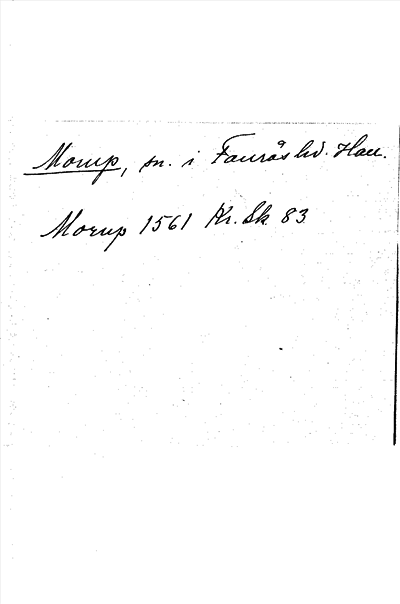 Morup, sn. i Faurås hd. Hall.
Morup 1561 Kr. Sk. 83